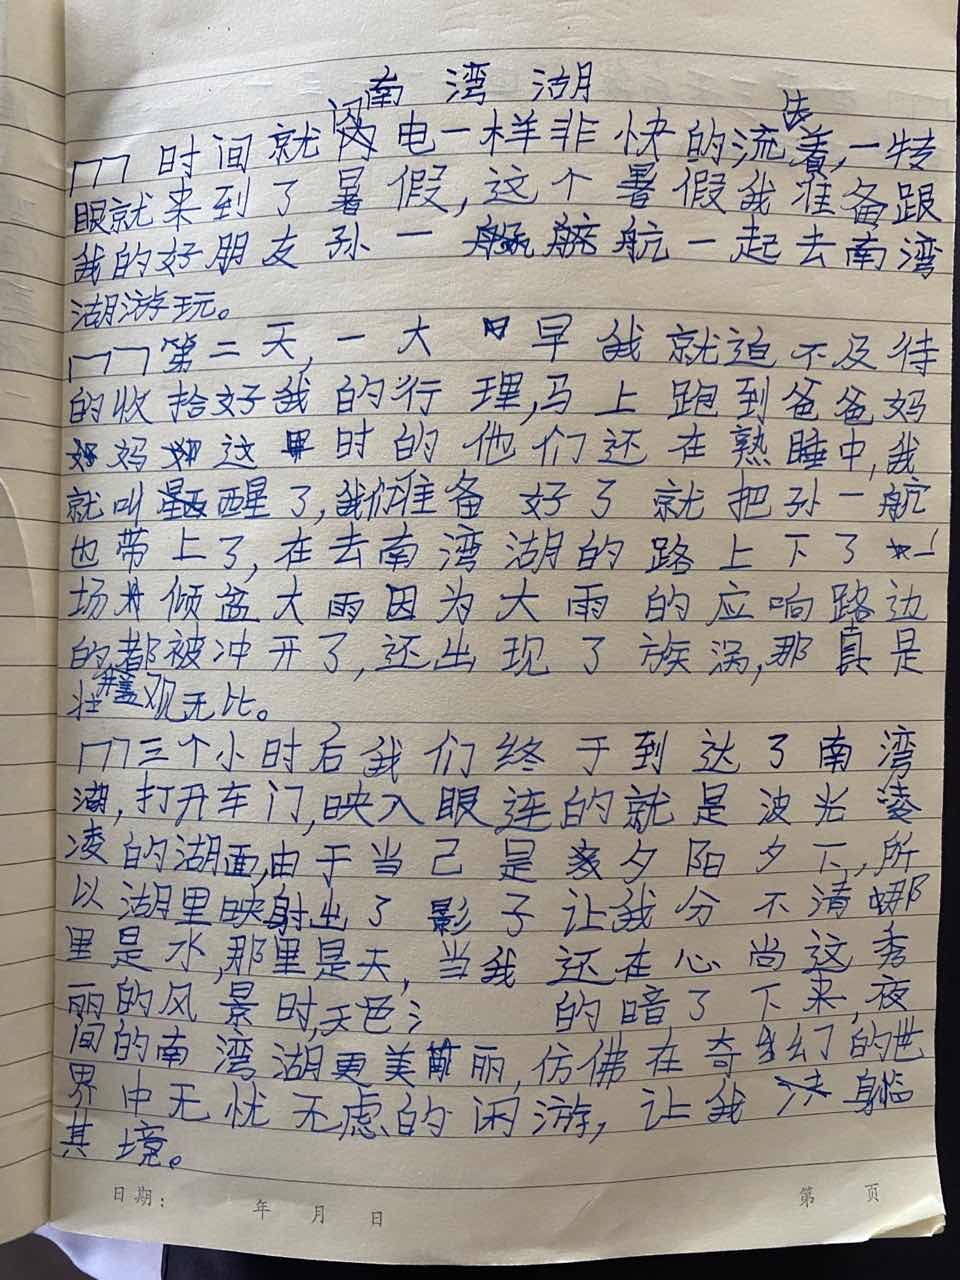 南湾湖
时间就闪电一样非快的流着,一转
眼就来到了暑假,这个暑假我准备跟
我的好朋友孙一航一起去南湾
湖游玩。
第二天,一大早我就迫不及待
的收拾好我的行理,马上跑到爸爸妈
妈这时的他们还在熟睡中,我
就叫醒了,我们准备好了就把孙一航
也带上了,在去南湾湖的路上下了一
场倾盆大雨因为大雨的应响路边
的都被冲开了,还出现了族涡,那真是
壮观无比。
三个小时后我们终于到达了南湾
湖,打开车门,映入眼连的就是波光凌
凌的湖面,由于当己是夕阳夕下,所
以湖里映射出了影子让我分不清哪
里是水,那里是天,当我还在心尚这秀
丽的风景时,天色 的暗了下来,夜
间的南湾湖更美丽,仿佛在奇幻的世
界中无忧无虑的闲游,让我 身临
其境。
日期: 年 月 日
第 页